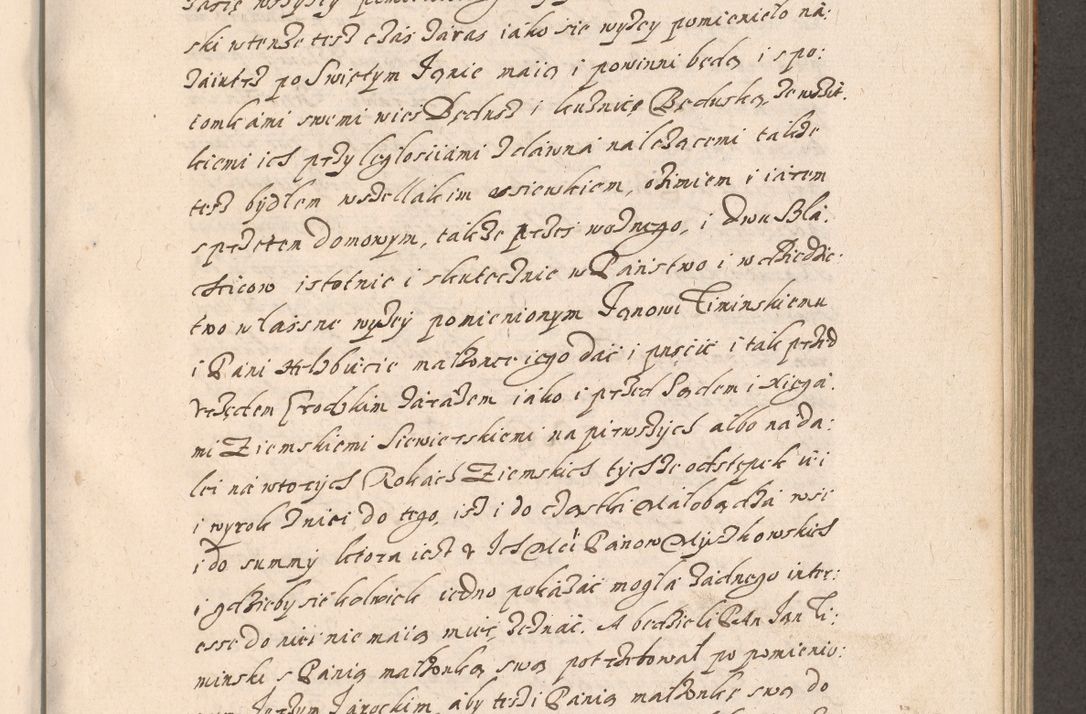 ski wtenże test cżas zaras iako sie wyżey pomienieło na:
zaiutrz po Swiętym Janie maią i powinni będą i spo:
tomkami swemi wies Będusz i kuznicę Beduską, ze wszit:
kiemi ich przyległosciami zdawna należącemi także
tesz bydłem wszellakim osiewkiem, ożimiem y iarem
sprzętem domowym, także przes woznego, i dwu Szla:
chcicow istotnie i skutecznie w Panstwo i w dziedzic:
two własne wyżey pomienionym Janowi Timinskiemu
i Pani małżonce iego dac i puscic i tak przed
Vrzędem Grodzkim zarazem iako i przed Sądem i Xięga:
mi Ziemskiemi Siewierskiemi na pierwszych albo na da:
lei na wtorych Rokach Ziemskich tychże odstępek
i wyrok znici do tego, isz i do cżąstki Małobądza wsi
i do summy ktora iest v Ich Mci Panow Myszkowskich
i gdzieby sie kolwiek iedno pokazac mogła żadnego inter:
esse do niei nie maią miec zeznac. A będzieli Pan Jan Ti:
minski s Panią małżonką swą potrzebował po pomienio:
nym Jerzym Jarockim, aby tesz i Panią małżonkę swą do